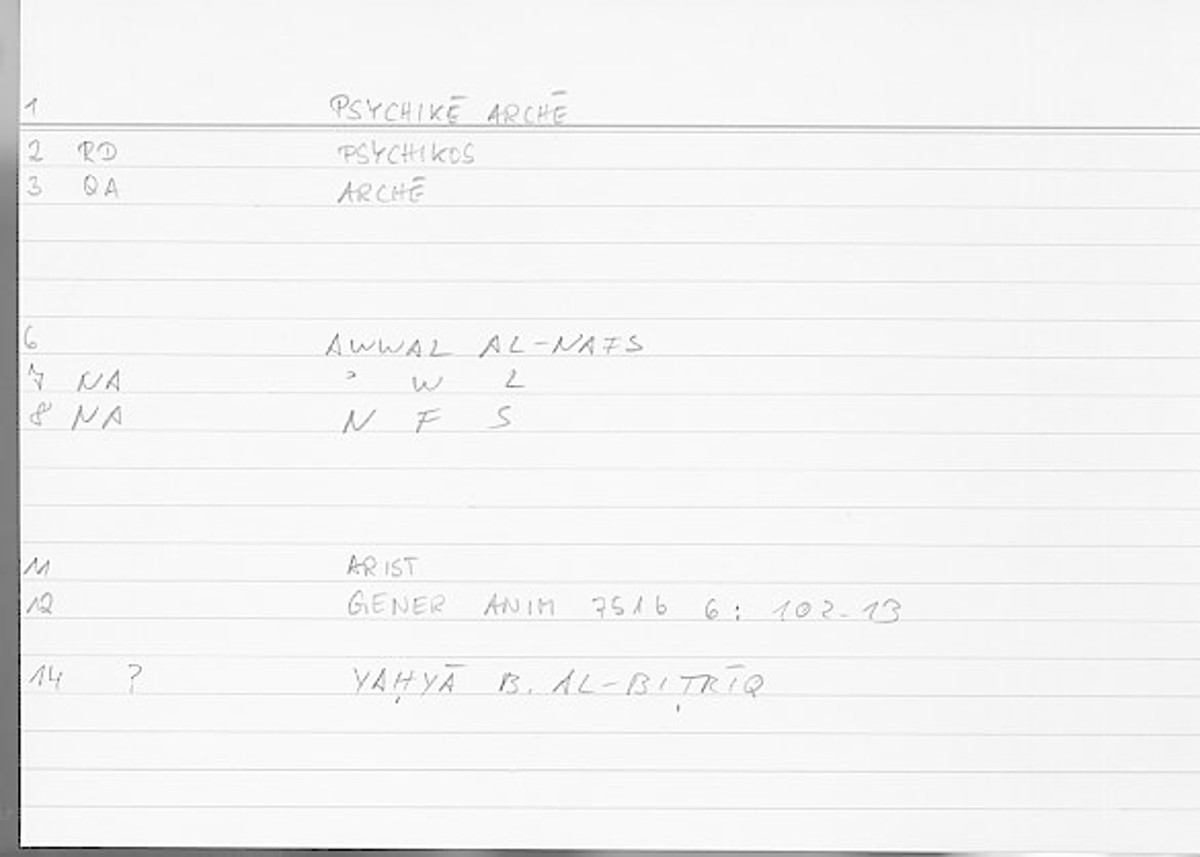 1 PSYCHIKĒ ARCHĒ
2 RD PSYCHIKOS
3 QA ARCHĒ
6 AWWAL AL-NAFS
7 NA ʾ W L
8 NA N F S
11 ARIST
12 GENER ANIM 751b 6: 102-13
14 ? YAḤYĀ B. AL-BIṬRĪQ